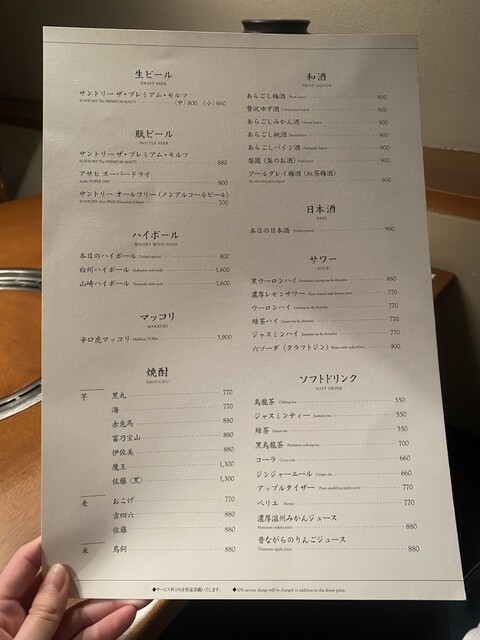 生ビール
DRAFT BEER
サントリー ザ・プレミアム・モルツ
SUNTORY The PREMIUM MALTS (中) 800 (小) 660
瓶ビール
BOTTLE BEER
サントリー ザ・プレミアム・モルツ
SUNTORY The PREMIUM MALTS 880
アサヒ スーパードライ
Asahi SUPER DRY 800
サントリー オールフリー (ノンアルコールビール)
SUNTORY ALL-FREE 700
ハイボール
WHISKY WITH SODA
本日のハイボール Today's special 800
白州ハイボール Hakushu with soda 1,600
山崎ハイボール Yamazaki with soda 1,600
マッコリ
MAKKORI
辛口虎マッコリ Makkori TORA 3,900
焼酎
SHOUCHU
芋 黒丸 770
海 770
赤兎馬 880
富乃宝山 880
伊佐美 880
魔王 1,300
佐藤 (黒) 1,300
麦 おこげ 770
吉四六 880
佐藤 880
米 鳥飼 880
和酒
FRUIT LIQUOR
あらごし梅酒 Plum liquor 800
贅沢ゆず酒 800
あらごしみかん酒 Orange liquor 800
あらごし桃酒 Peach liquor 900
あらごしパイン酒 Pineapple liquor 900
梨園 (梨のお酒) Pear liquor 900
アールグレイ梅酒 (紅茶梅酒) 900
日本酒
SAKE
本日の日本酒 Today's special 960
サワー
SOUR
黒ウーロンハイ Premium oolong tea & shouchu 880
濃厚レモンサワー 770
ウーロンハイ Oolong tea & shouchu 770
緑茶ハイ Green tea & shouchu 770
ジャスミンハイ Jasmine tea & shouchu 770
六ソーダ (クラフトジン) 900
ソフトドリンク
SOFT DRINK
烏龍茶 Oolong tea 550
ジャスミンティー Jasmine tea 550
緑茶 Green tea 550
黒烏龍茶 Premium oolong tea 700
コーラ Coca cola 660
ジンジャーエール Ginger ale 660
アップルタイザー Pure sparkling apple juice 770
ペリエ Perrier 770
濃厚温州みかんジュース
Premium mikan juice 880
昔ながらのりんごジュース
Premium apple juice 880
◆サービス料10%を別途頂戴いたします。 ◆10% service charge will be charged in addition to the above price.